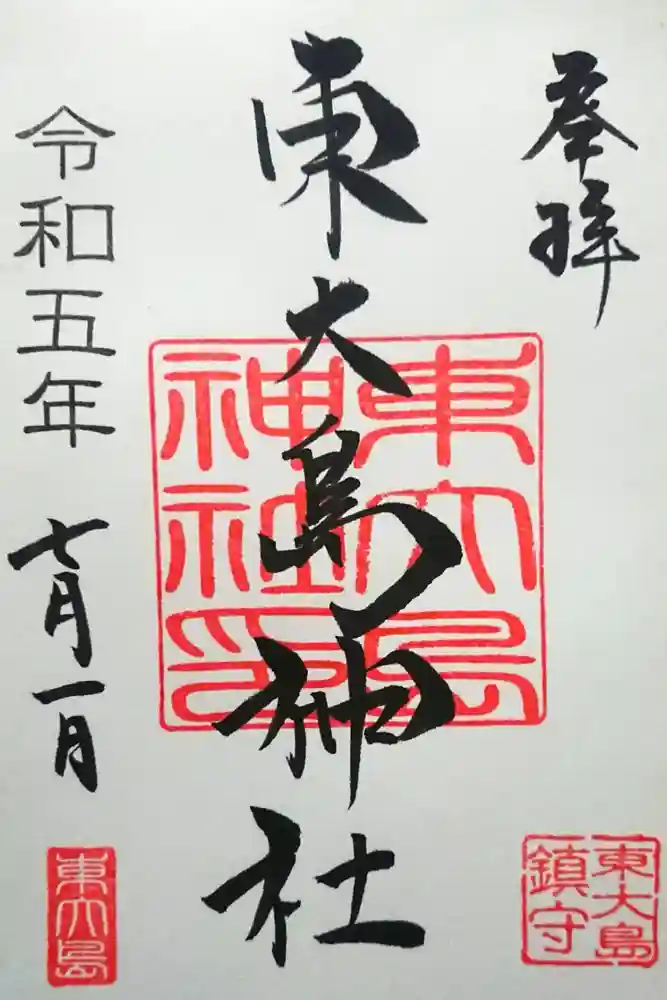 奉拝
東大島神社
令和五年
七月一日
東大島
神社印
東大島
鎮守
東大島